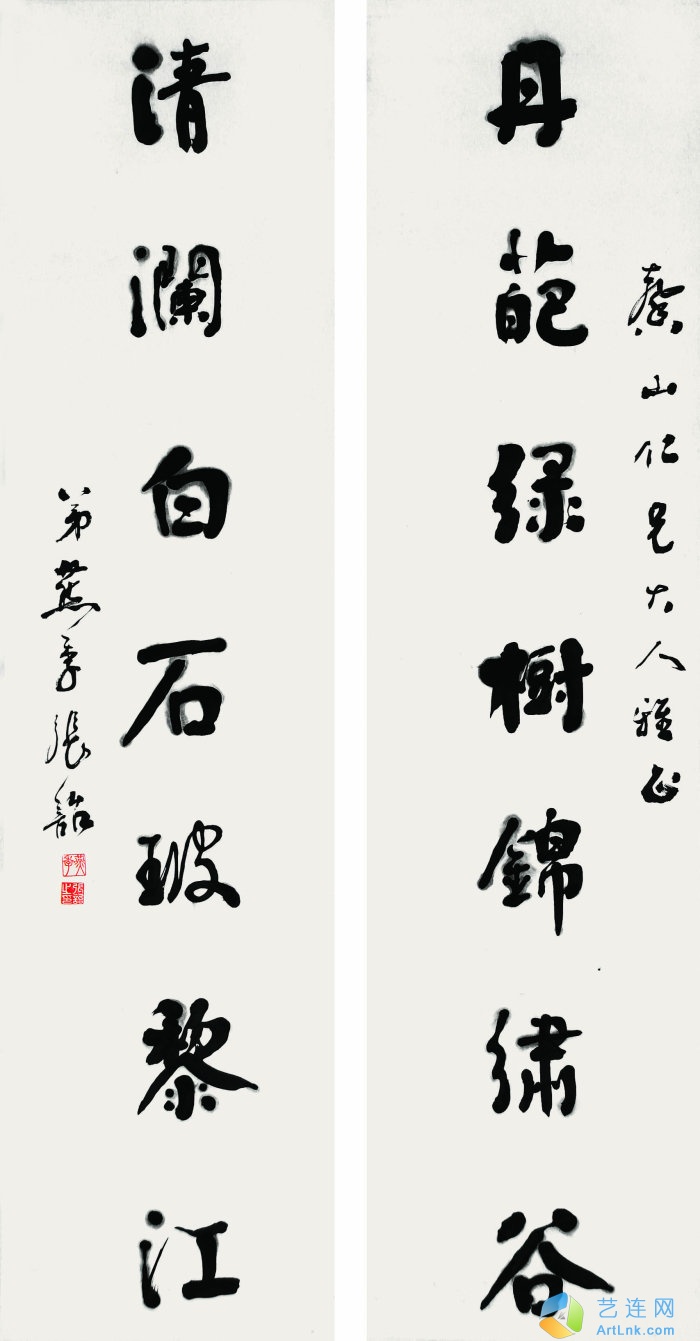 山仁兄大人雅正
丹葩綠樹錦繡谷
清瀾白石玻黎江
弟燕季張
艺连网
ArtLnk.com